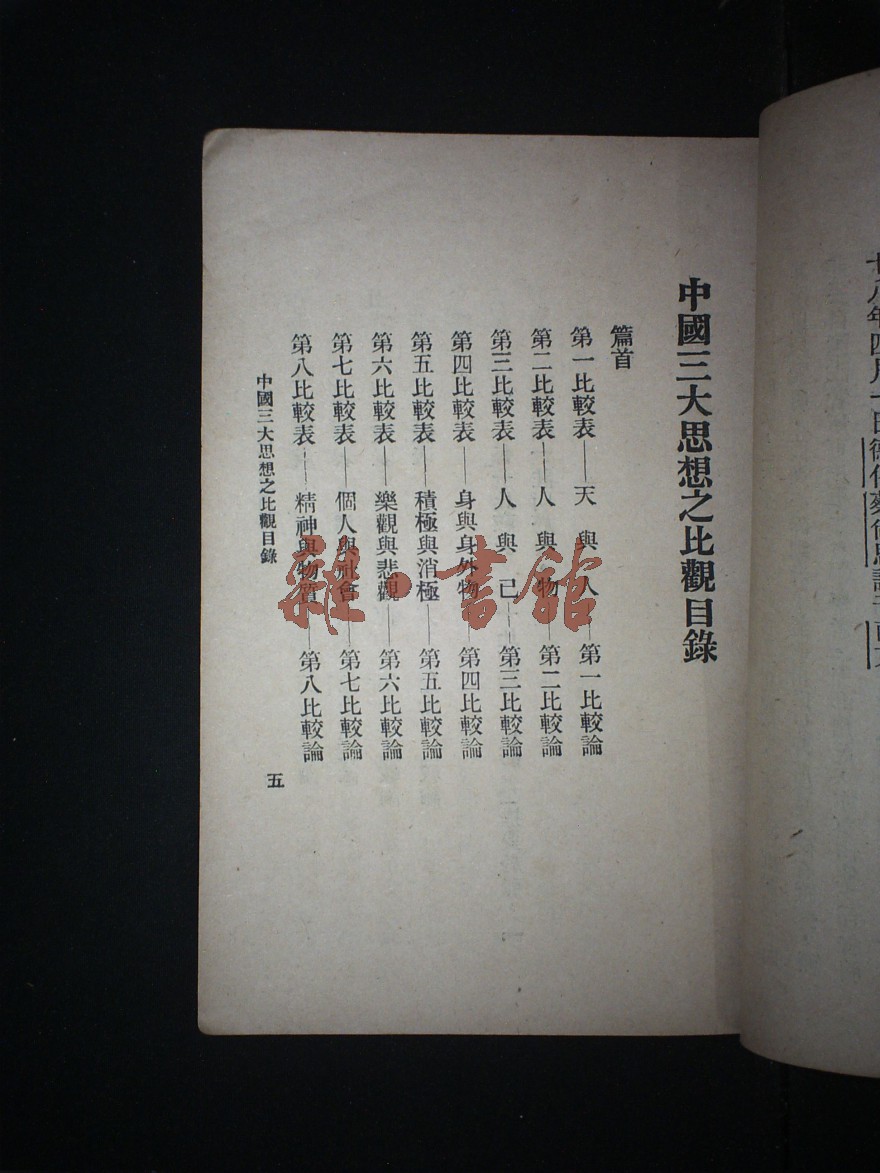 中國三大思想之比觀目錄
篇首
第一比較表——天與人——第一比較論
第二比較表——人與物——第二比較論
第三比較表——人與己——第三比較論
第四比較表——身與身外物——第四比較論
第五比較表——積極與消極——第五比較論
第六比較表——樂觀與悲觀——第六比較論
第七比較表——個人與社會——第七比較論
第八比較表——精神與物質——第八比較論
中國三大思想之比觀目錄
五
雜·書館